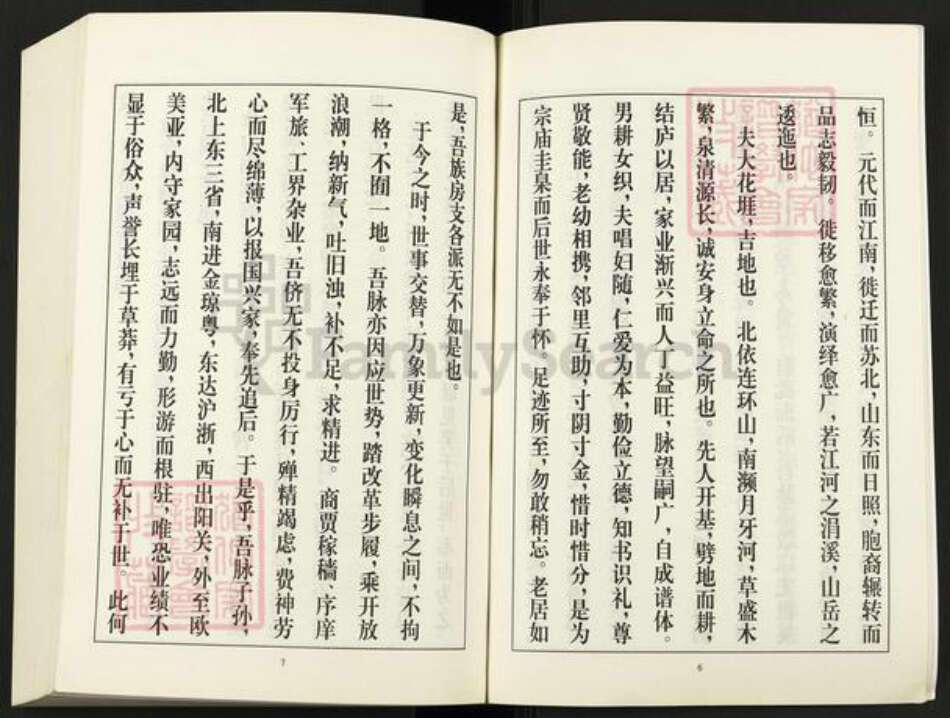 恒。元代而江南，徙迁而苏北，山东而日照，胞裔辗转而
品志毅韧。徙移愈繁，演绎愈广，若江河之涓溪，山岳之
逶迤也。
夫大花堐，吉地也。北依连环山，南濒月牙河，草盛木
繁，泉清源长，诚安身立命之所也。先人开基，劈地而耕，
结庐以居，家业渐兴而人丁益旺，脉望嗣广，自成谱体。
男耕女织，夫唱妇随，仁爱为本，勤俭立德，知书识礼，尊
贤敬能，老幼相携，邻里互助，寸阴寸金，惜时惜分，是为
宗庙圭臬而后世永奉于怀。足迹所至，勿敢稍忘。老居如
6
是，吾族房支各派无不如是也。
于今之时，世事交替，万象更新，变化瞬息之间，不拘
一格，不囿一地。吾脉亦因应世势，踏改革步履，乘开放
浪潮，纳新气，吐旧浊，补不足，求精进。商贾稼穑、序庠
军旅、工界杂业，吾侪无不投身厉行，殚精竭虑，费神劳
心而尽绵薄，以报国兴家，奉先追后。于是乎，吾脉子孙，
北上东三省，南进金琼粤，东达沪浙，西出阳关，外至欧
美亚，内守家园，志远而力勤，形游而根驻，唯恐业绩不
显于俗众，声誉长埋于草莽，有亏于心而无补于世。此何
7
FamilySearch